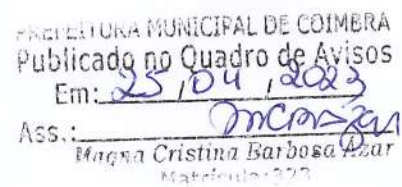 PREFEITURA MUNICIPAL DE COIMBRA
Publicado no Quadro de Avisos
Em: 25 / 04 / 2023
Ass.:
Magna Cristina Barbosa Azar
Matrícula: 323